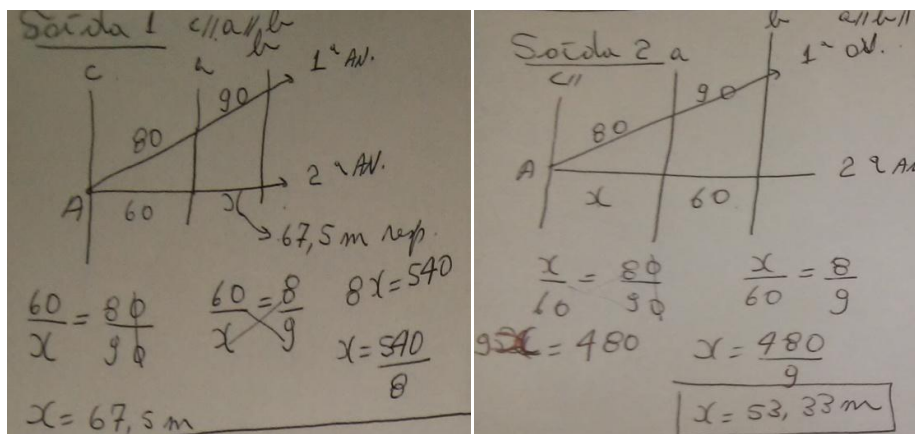 Saída 1 c//a//b
c a b 1ª AV.
90
80
A 60 x 2ª AV.
67,5 m resp.
60/x = 80/90 60/x = 8/9 8x = 540
x = 540/8
x = 67,5 m
Saída 2 a//b//
c// a b 1ª AV.
90
80
A 2ª AV
x 60
x/60 = 80/90 x/60 = 8/9
9x = 480 x = 480/9
x = 53,33 m